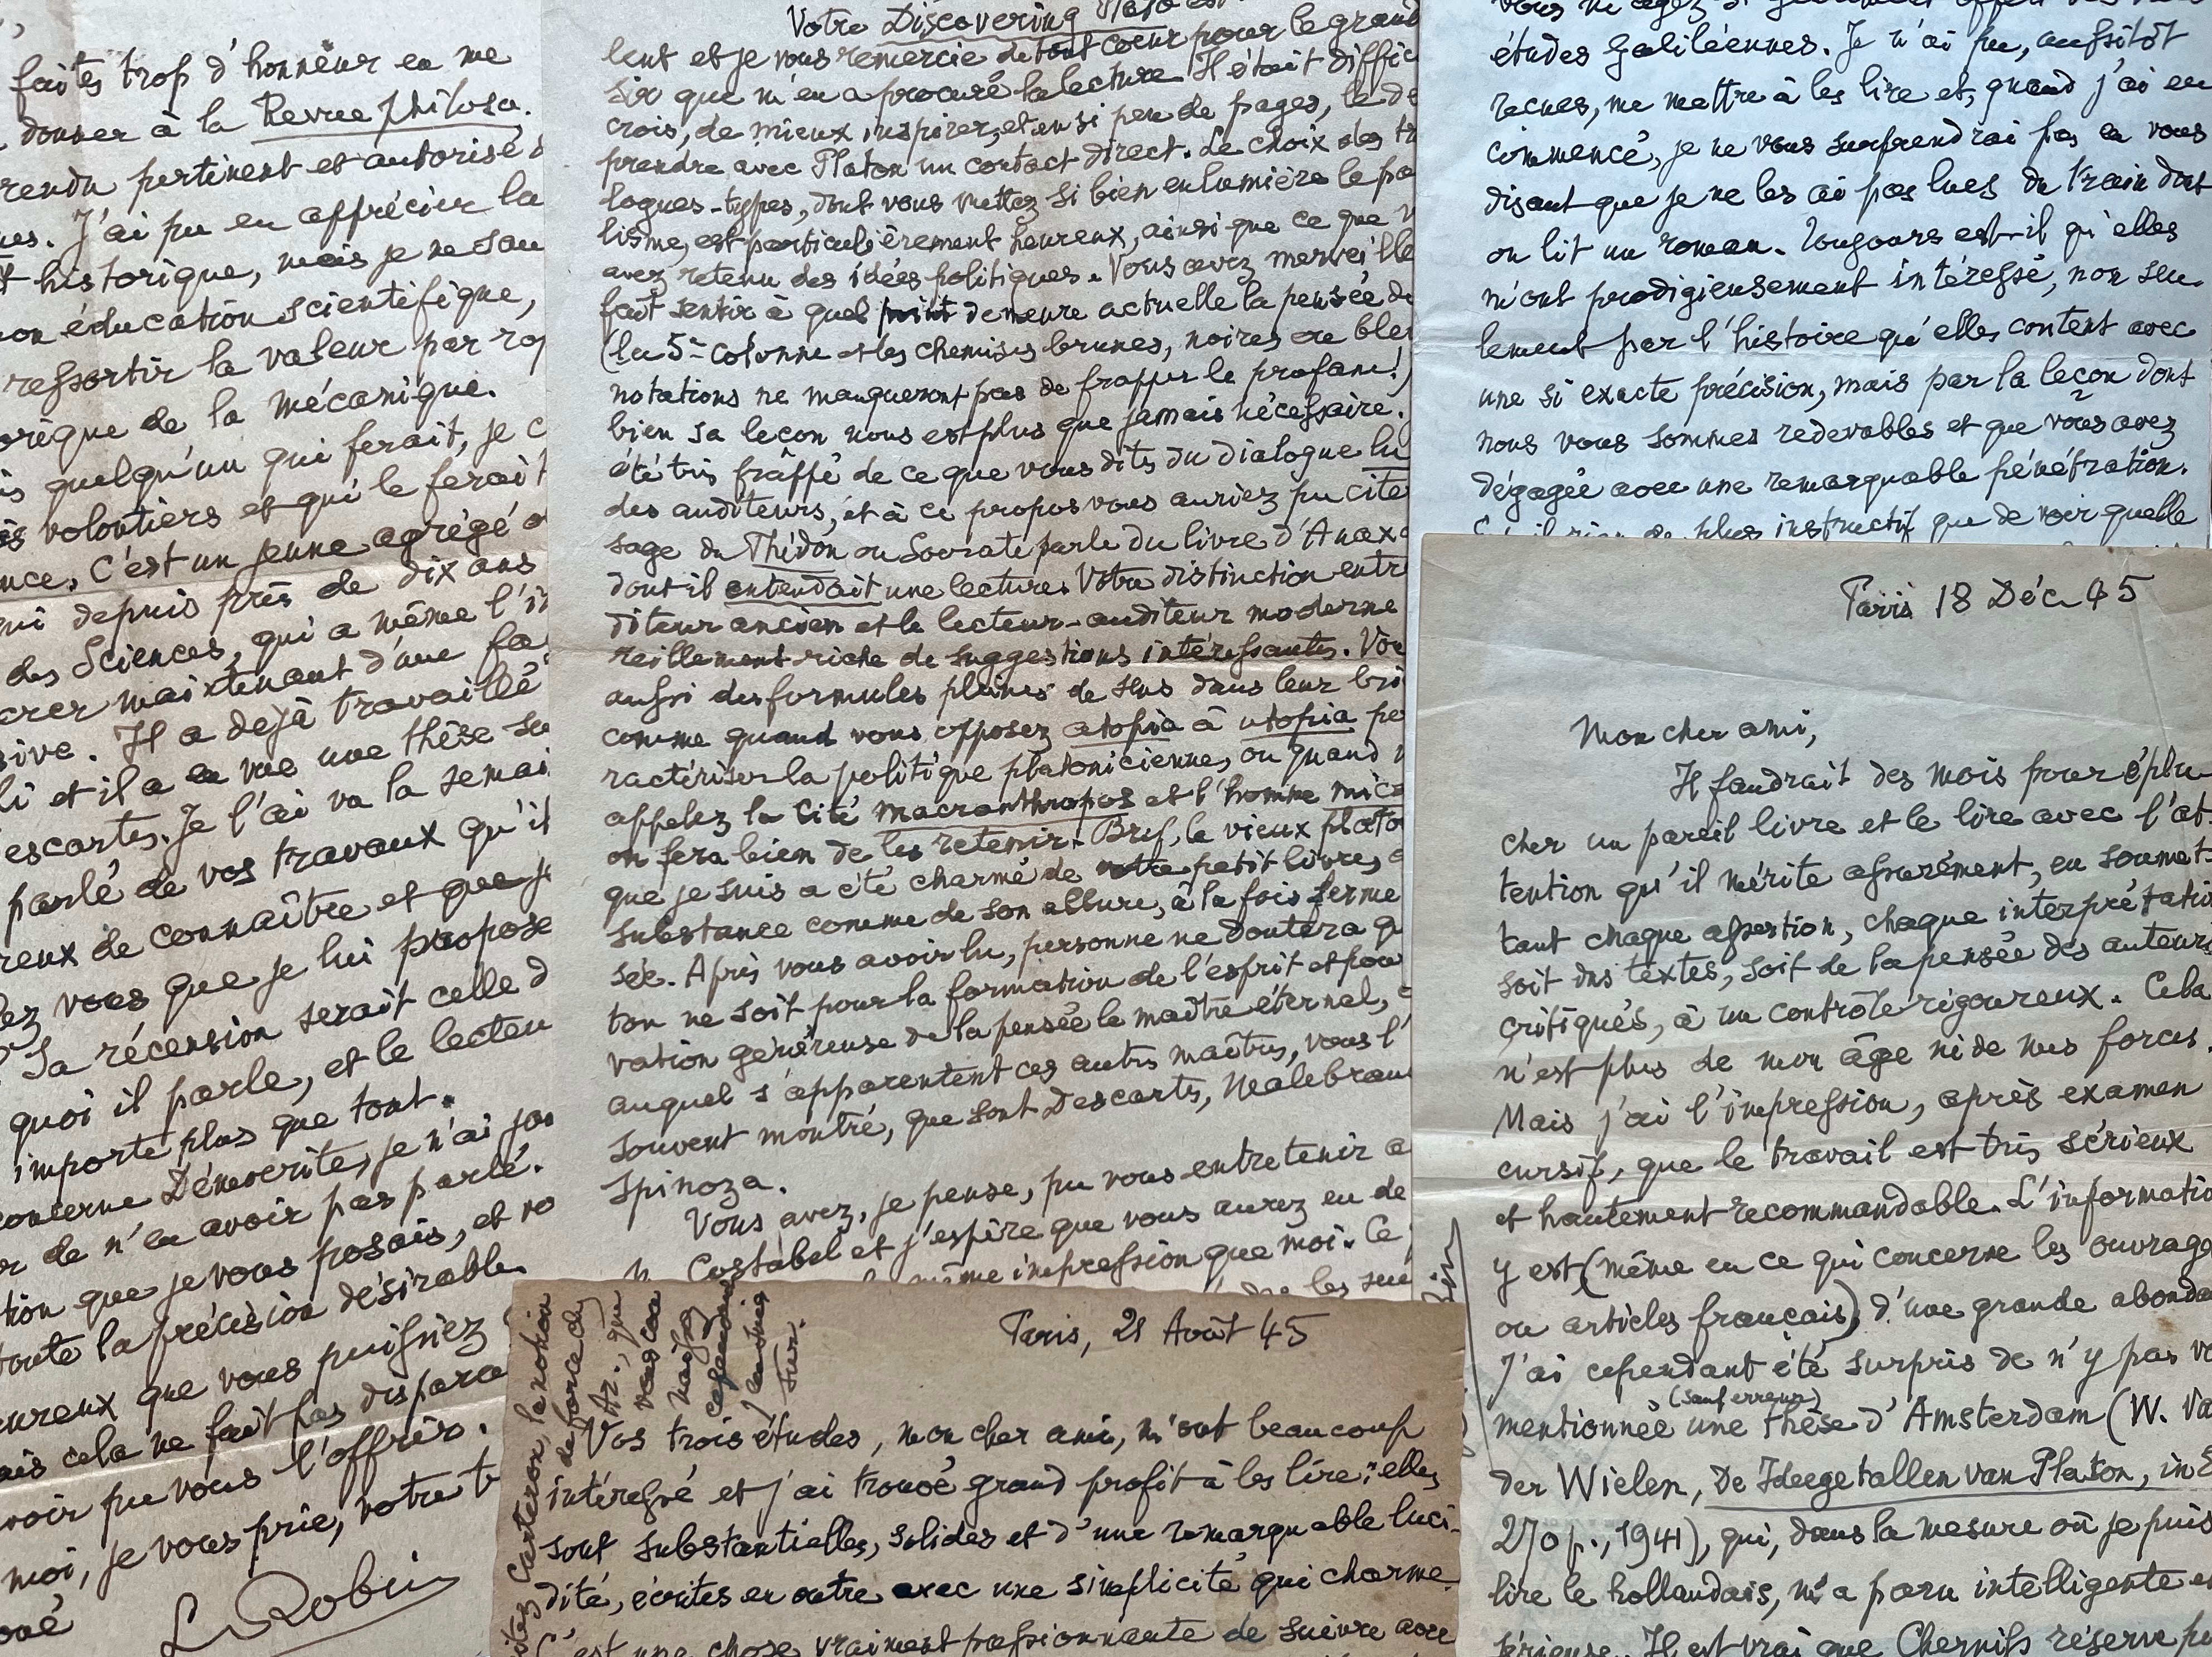 faites trop d'honneur en me
donner à la Revue philoso.
rendu pertinent et autorisé d
ues. J'ai pu en apprécier la
t historique, mais je ne sau
on éducation scientifique,
ressortir la valeur par rap
orique de la mécanique.
is quelqu'un qui ferait, je c
ès volontiers et qui le ferait
nce. C'est un jeune agrégé d
qui depuis près de dix ans
des Sciences, qui a même l'in
crer maintenant d'une fa
sive. Il a dejà travaillé
li et il a en vue une thèse su
escartes. Je l'ai vu la semai
parlé de vos travaux qu'il
reux de connaître et que je
lez vous que je lui propose
? Sa récension serait celle d
quoi il parle, et le lecteu
importe plus que tout.
concerne Démocrite, je n'ai pas
or de n'en avoir pas parlé.
tion que je vous posais, et vo
toute la précision désirable.
eureux que vous puissiez
ais cela ne fait pas dispara
voir pu vous l'offrir.
moi, je vous prie, votre t
oué
L. Robin
Votre Discovering Plato
lent et je vous remercie de tout coeur pour le grand
sir que m'en a procuré la lecture. Il était diffic
crois, de mieux inspirer, et en si peu de pages, le dé
prendre avec Platon un contact direct. Le choix des tr
logues-types, dont vous mettez si bien en lumière le pa
lisme, est particulièrement heureux, ainsi que ce que v
avez retenu des idées politiques. Vous avez merveille
fait sentir à quel point demeure actuelle la pensée de
(la 5e colonne et les chemises brunes, noires ou bleu
notations ne manqueront pas de frapper le profane!)
bien sa leçon nous est plus que jamais nécessaire.
été très frâppé de ce que vous dits du dialogue lu
des auditeurs, et à ce propos vous auriez pu cite
sage du Phédon ou Socrate parle du livre d'Anaxa
dont il entendait une lecture. Votre distinction entr
diteur ancien et le lecteur-auditeur moderne
veillement riche de suggestions intéressantes. Vou
aussi des formules pleines de sens dans leur bri
comme quand vous opposez atopia à utopia po
ractériser la politique platonicienne, ou quand v
appelez la Cité macranthropos et l'homme mic
on fera bien de les retenir. Bref, le vieux plato
que je suis a été charmé de votre petit livre,
substance comme de son allure, à la fois ferme
sée. Après vous avoir lu, personne ne doutera qu
ton ne soit pour la formation de l'esprit et pour
vation généreuse de la pensée le maître éternel,
auquel s'apparentent ces autres maîtres, vous l'
souvent montré, que sont Descartes, Malebran
Spinoza.
Vous avez, je pense, pu vous entretenir a
Costabel et j'espère que vous aurez eu de
même impression que moi. Ce
études galiléennes. Je n'ai pu, aussitôt
reçues, me mettre à les lire et, quand j'ai eu
commencé, je ne vous surprendrai pas en vous
disant que je ne les ai pas lues du train dont
on lit un roman. Toujours est-il qu'elles
m'ont prodigieusement intéressé, non seu-
lement par l'histoire qu'elles content avec
une si exacte précision, mais par la leçon dont
nous vous sommes redevables et que vous avez
dégagée avec une remarquable pénétration.
rien de plus instructif que de voir quelle
Paris 18 Déc. 45
Mon cher ami,
Il faudrait des mois pour éplu-
cher un pareil livre et le lire avec l'at-
tention qu'il mérite assurément, en soumet-
tant chaque assertion, chaque interprétation
soit des textes, soit de la pensée des auteurs
critiqués, à un contrôle rigoureux. Cela
n'est plus de mon âge ni de mes forces.
Mais j'ai l'impression, après examen
cursif, que le travail est très sérieux
et hautement recommandable. L'informatio
y est (même en ce qui concerne les ouvrage
ou articles français) d'une grande abonda
J'ai cependant été surpris de n'y pas vo
(sauf erreur)
mentionnée une thèse d'Amsterdam (W. Va
der Wielen, De Ideegetallen van Platon, in
270 p., 1941), qui, dans la mesure où je puis
lire le hollandais, m'a paru intelligente e
sérieuse. Il est vrai que Cherniss réserve
Paris, 21 Août 45
Vos trois études, mon cher ami, m'ont beaucoup
intéressé et j'ai trouvé grand profit à les lire; elles
sont substantielles, solides et d'une remarquable luci-
dité, écrites en outre avec une simplicité qui charme.
C'est une chose vraiment passionnante de suivre avec
Carteron, la notion
de force
Ar., que